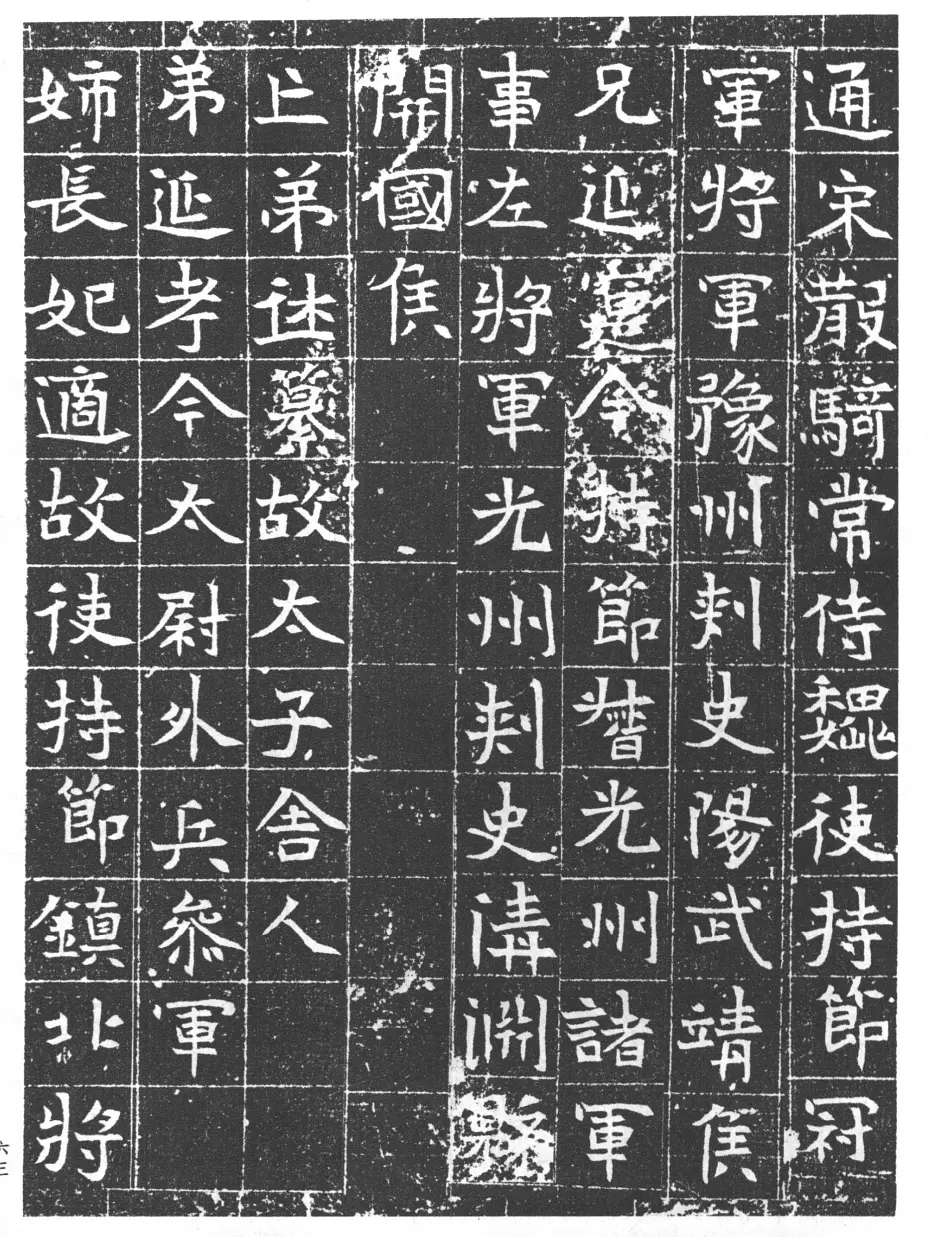 通宋散騎常侍魏使持節冠
軍將軍豫州刺史陽武靖侯
兄延寔今持節督光州諸軍
事左將軍光州刺史清淵縣
開國侯
亡弟休纂故太子舍人
弟延考今太尉外兵參軍
姊長妃適故使持節鎮北將
六三